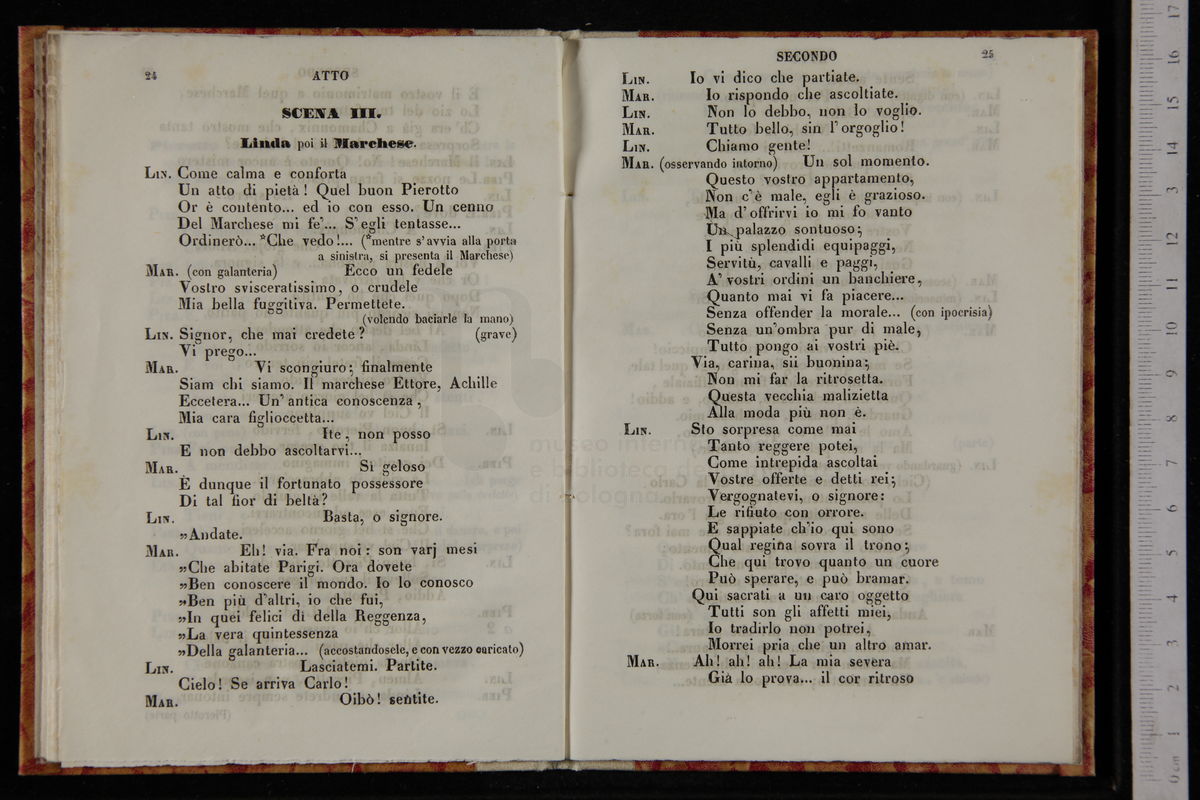 24 ATTO
SCENA III.
Linda poi il Marchese.
Lin. Come calma e conforta
Un atto di pietà! Quel buon Pierotto
Or è contento... ed io con esso. Un cenno
Del Marchese mi fe'... S'egli tentasse...
Ordinerò... *Che vedo!... (*mentre s'avvia alla porta
a sinistra, si presenta il Marchese)
Mar. (con galanteria) Ecco un fedele
Vostro svisceratissimo, o crudele
Mia bella fuggitiva. Permettete.
(volendo baciarle la mano)
Lin. Signor, che mai credete? (grave)
Vi prego...
Mar. Vi scongiuro; finalmente
Siam chi siamo. Il marchese Ettore, Achille
Eccetera... Un' antica conoscenza,
Mia cara figlioccetta...
Lin. Ite, non posso
E non debbo ascoltarvi...
Mar. Sì geloso
È dunque il fortunato possessore
Di tal fior di beltà?
Lin. Basta, o signore.
»Andate.
Mar. Eh! via. Fra noi: son varj mesi
»Che abitate Parigi. Ora dovete
»Ben conoscere il mondo. Io lo conosco
»Ben più d'altri, io che fui,
»In quei felici dì della Reggenza,
»La vera quintessenza
»Della galanteria... (accostandosele, e con vezzo caricato)
Lin. Lasciatemi. Partite.
Cielo! Se arriva Carlo!
Mar. Oibò! sentite.
SECONDO 25
Lin. Io vi dico che partiate.
Mar. Io rispondo che ascoltiate.
Lin. Non lo debbo, non lo voglio.
Mar. Tutto bello, sin l'orgoglio!
Lin. Chiamo gente!
Mar. (osservando intorno) Un sol momento.
Questo vostro appartamento,
Non c'è male, egli è grazioso.
Ma d'offrirvi io mi fo vanto
Un palazzo sontuoso;
I più splendidi equipaggi,
Servitù, cavalli e paggi,
A' vostri ordini un banchiere,
Quanto mai vi fa piacere...
Senza offender la morale... (con ipocrisia)
Senza un'ombra pur di male,
Tutto pongo ai vostri piè.
Via, carina, sii buonina;
Non mi far la ritrosetta.
Questa vecchia malizietta
Alla moda più non è.
Lin. Sto sorpresa come mai
Tanto reggere potei,
Come intrepida ascoltai
Vostre offerte e detti rei;
Vergognatevi, o signore:
Le rifiuto con orrore.
E sappiate ch'io qui sono
Qual regina sovra il trono;
Che qui trovo quanto un cuore
Può sperare, e può bramar.
Qui sacrati a un caro oggetto
Tutti son gli affetti miei,
Io tradirlo non potrei,
Morrei pria che un altro amar.
Mar. Ah! ah! ah! La mia severa
Già lo prova... il cor ritroso